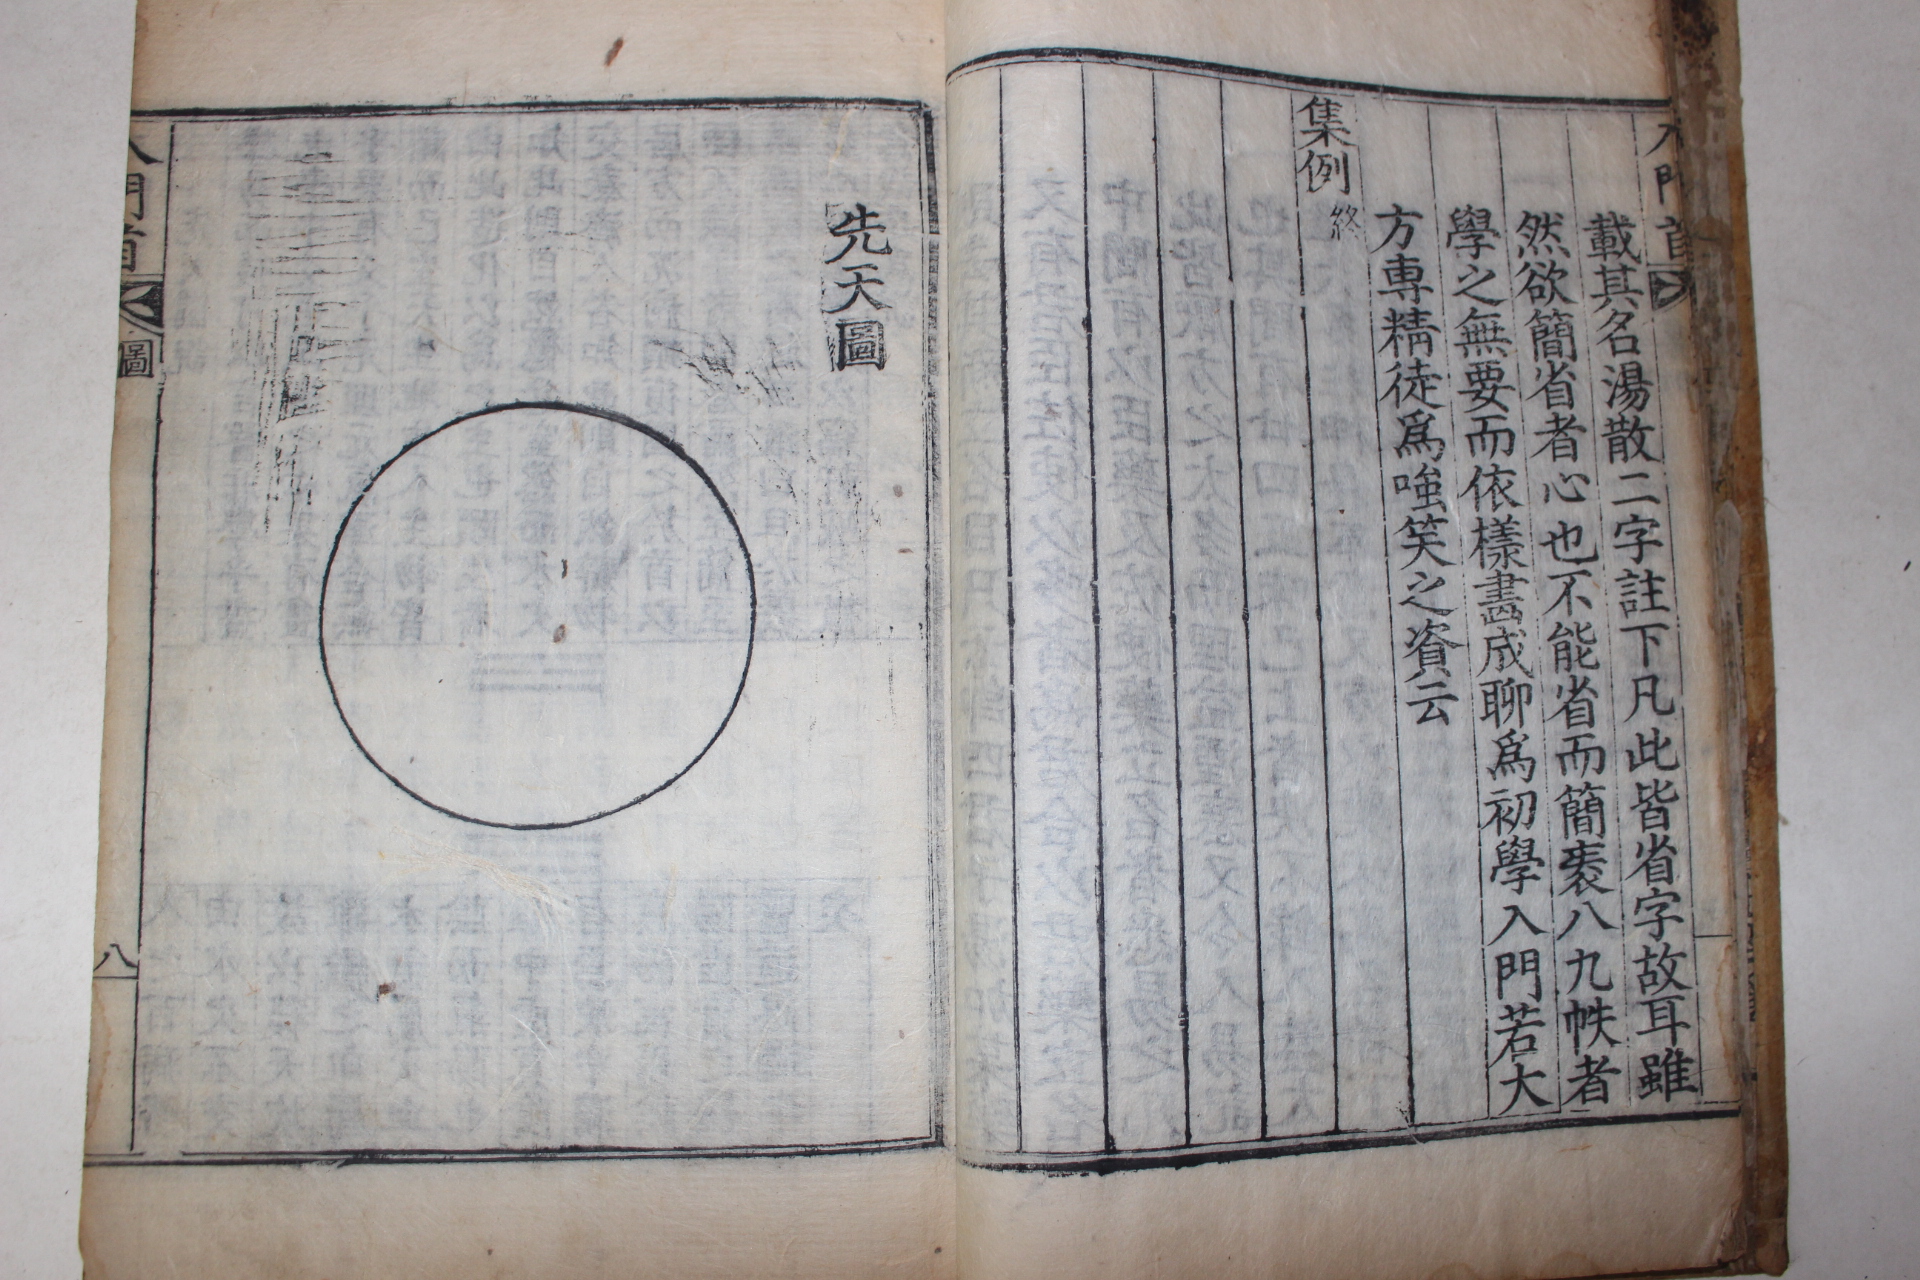 入門首
載其名湯散二字註下凡此皆省字故耳雖
然欲簡省者心也不能省而簡袠八九帙者
學之無要而依樣畵成聊爲初學入門若大
方專精徒爲嗤笑之資云
集例 終
先天圖
入門首
圖
八